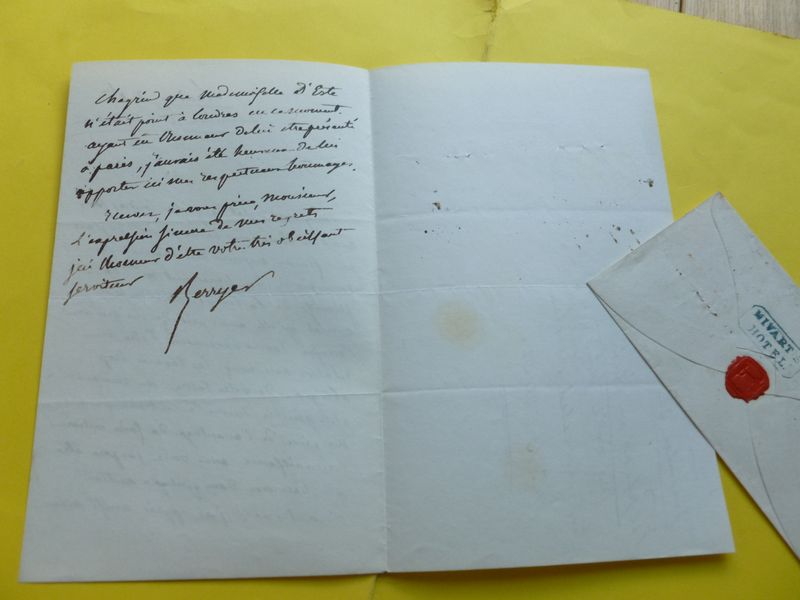 chagrin que Mademoiselle d'Este
n'était point à Londres en ce moment.
ayant eu l'honneur de lui etre présenté
à paris, j'aurais été heureux de lui
apporter ici mes respectueux hommages.
recevez, je vous prie, Monsieur,
l'expression sincere de mes regrets
j'ai l'honneur d'être votre très obéissant
serviteur
Berryer
MIVART'S
HOTEL.